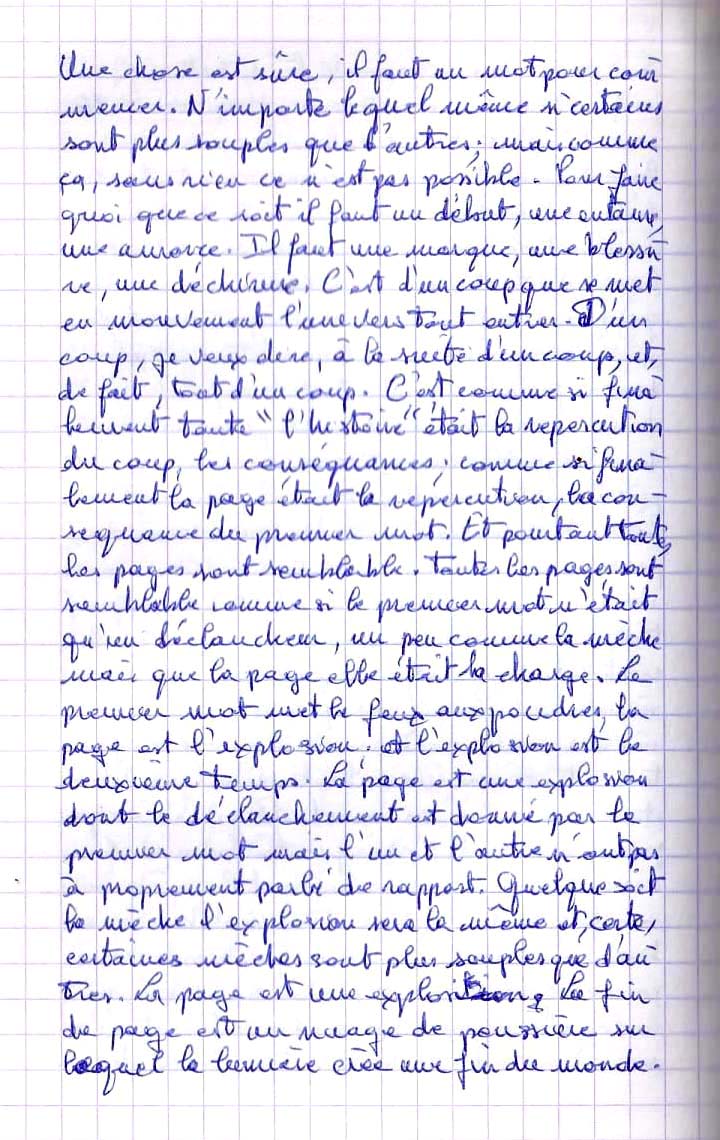 Une chose est sûre, il faut un mot pour com
mencer. N'importe lequel même si certains
sont plus souples que d'autres; mais comme
ça, sans rien ce n'est pas possible. Pour faire
quoi que ce soit il faut un début, une entame,
une amorce. Il faut une marque, une blessu
re, une déchirure. C'est d'un coup que se met
en mouvement l'univers tout entier. D'un
coup, je veux dire, à la suite d'un coup, et,
de fait, tout d'un coup. C'est comme si fina
lement toute "l'histoire" était la repercution
du coup, les conséquances; comme si fina-
lement la page était la répercution, la con-
sequance du premier mot. Et pourtant toutes
les pages sont semblable. Toutes les pages sont
semblable comme si le premier mot n'était
qu'un déclancheur, un peu comme la mèche
mais que la page elle était la charge. Le
premier mot met le feux aux poudres, la
page est l'explosion. et l'explosion est le
deuxième temps. La page est une explosion
dont le déclanchement est donné par le
premier mot mais l'un et l'autre n'ont pas
à proprement parlé de rapport. Quelque soit
la mèche l'explosion sera la même et, certe,
certaines mèches sont plus souples que d'au
tres. La page est une explosion, La fin
de page est un nuage de poussière sur
lequel la lumière crée une fin du monde.